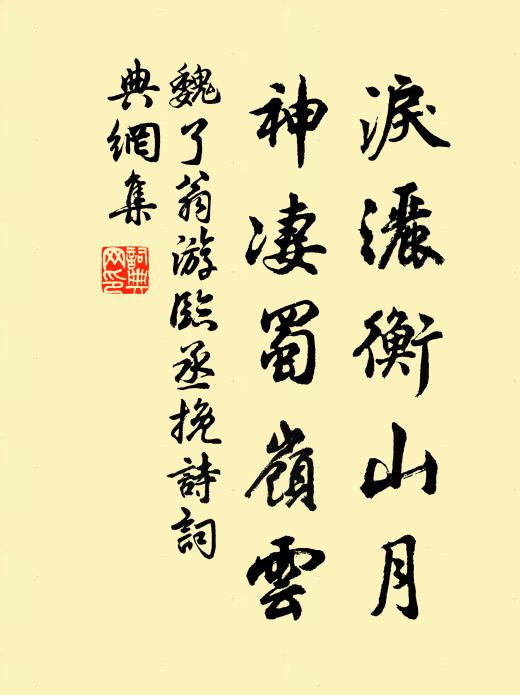 淚灑衡山月
神凄蜀嶺雲
魏了翁游臨丞挽詩詞
典網集
詞典
网印